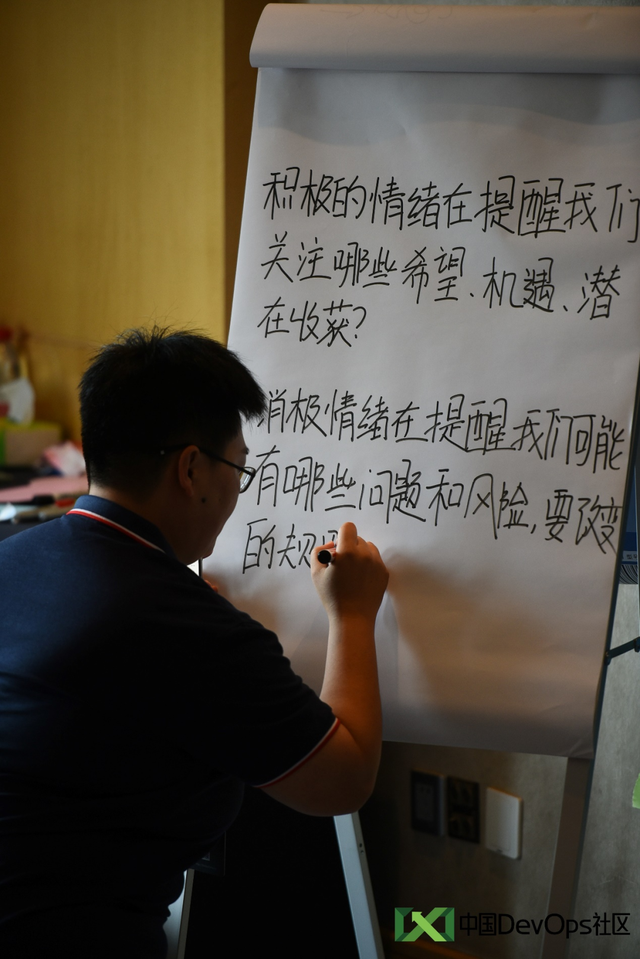 积极的情绪在提醒我们
关注哪些希望、机遇、潜
在收获?
消极情绪在提醒我们可能
有哪些问题和风险,要改变
的规
中国DevOps社区